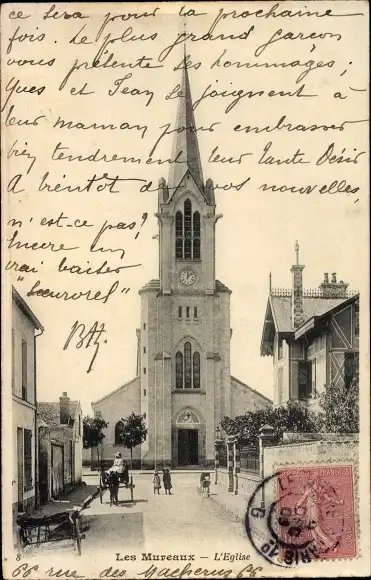 ce sera pour la prochaine
fois. Le plus grand garçon
vous présente ses hommages ;
Yves et Jean se joignent à
leur maman pour embrasser
bien tendrement leur Tante Désir
À bientôt de vos nouvelles,
n'est-ce pas ?
Encore un
vrai baiser
8
Les Mureaux — L'Eglise
66 rue des 66